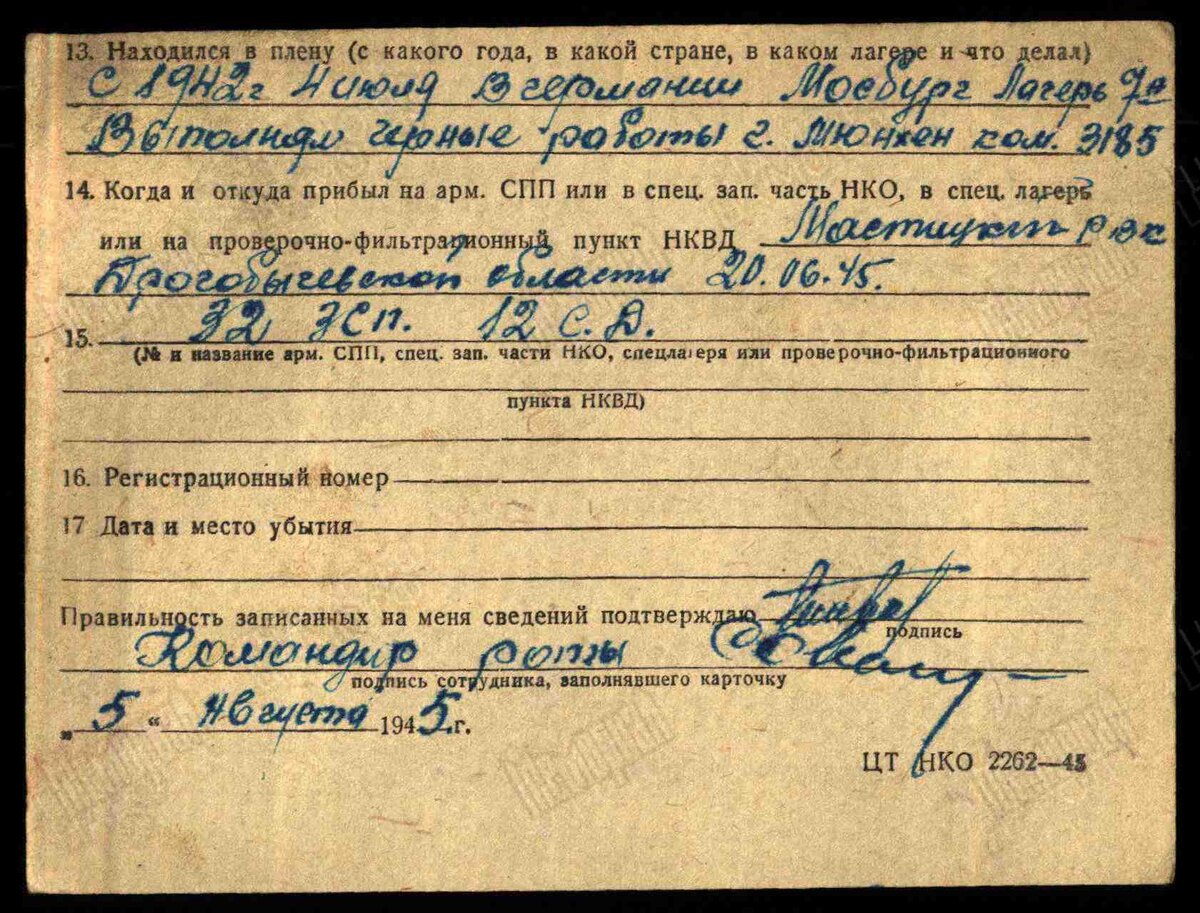 13. Находился в плену (с какого года, в какой стране, в каком лагере и что делал)
С 1942г 4 июля В германии Мосбург Лагерь 7а
Выполнял черные работы г. Мюнхен ком. 3185
14. Когда и откуда прибыл на арм. СПП или в спец. зап. часть НКО, в спец. лагерь
или на проверочно-фильтрационный пункт НКВД
области 20.06.45.
15. 32 ЗСП. 12 С.Д.
(№ и название арм. СПП, спец. зап. части НКО, спецлагеря или проверочно-фильтрационного
пункта НКВД)
16. Регистрационный номер
17 Дата и место убытия
Правильность записанных на меня сведений подтверждаю
подпись
Командир роты
подпись сотрудника, заполнявшего карточку
„ 5 “ Августа 1945.г.
ЦТ НКО 2262—45